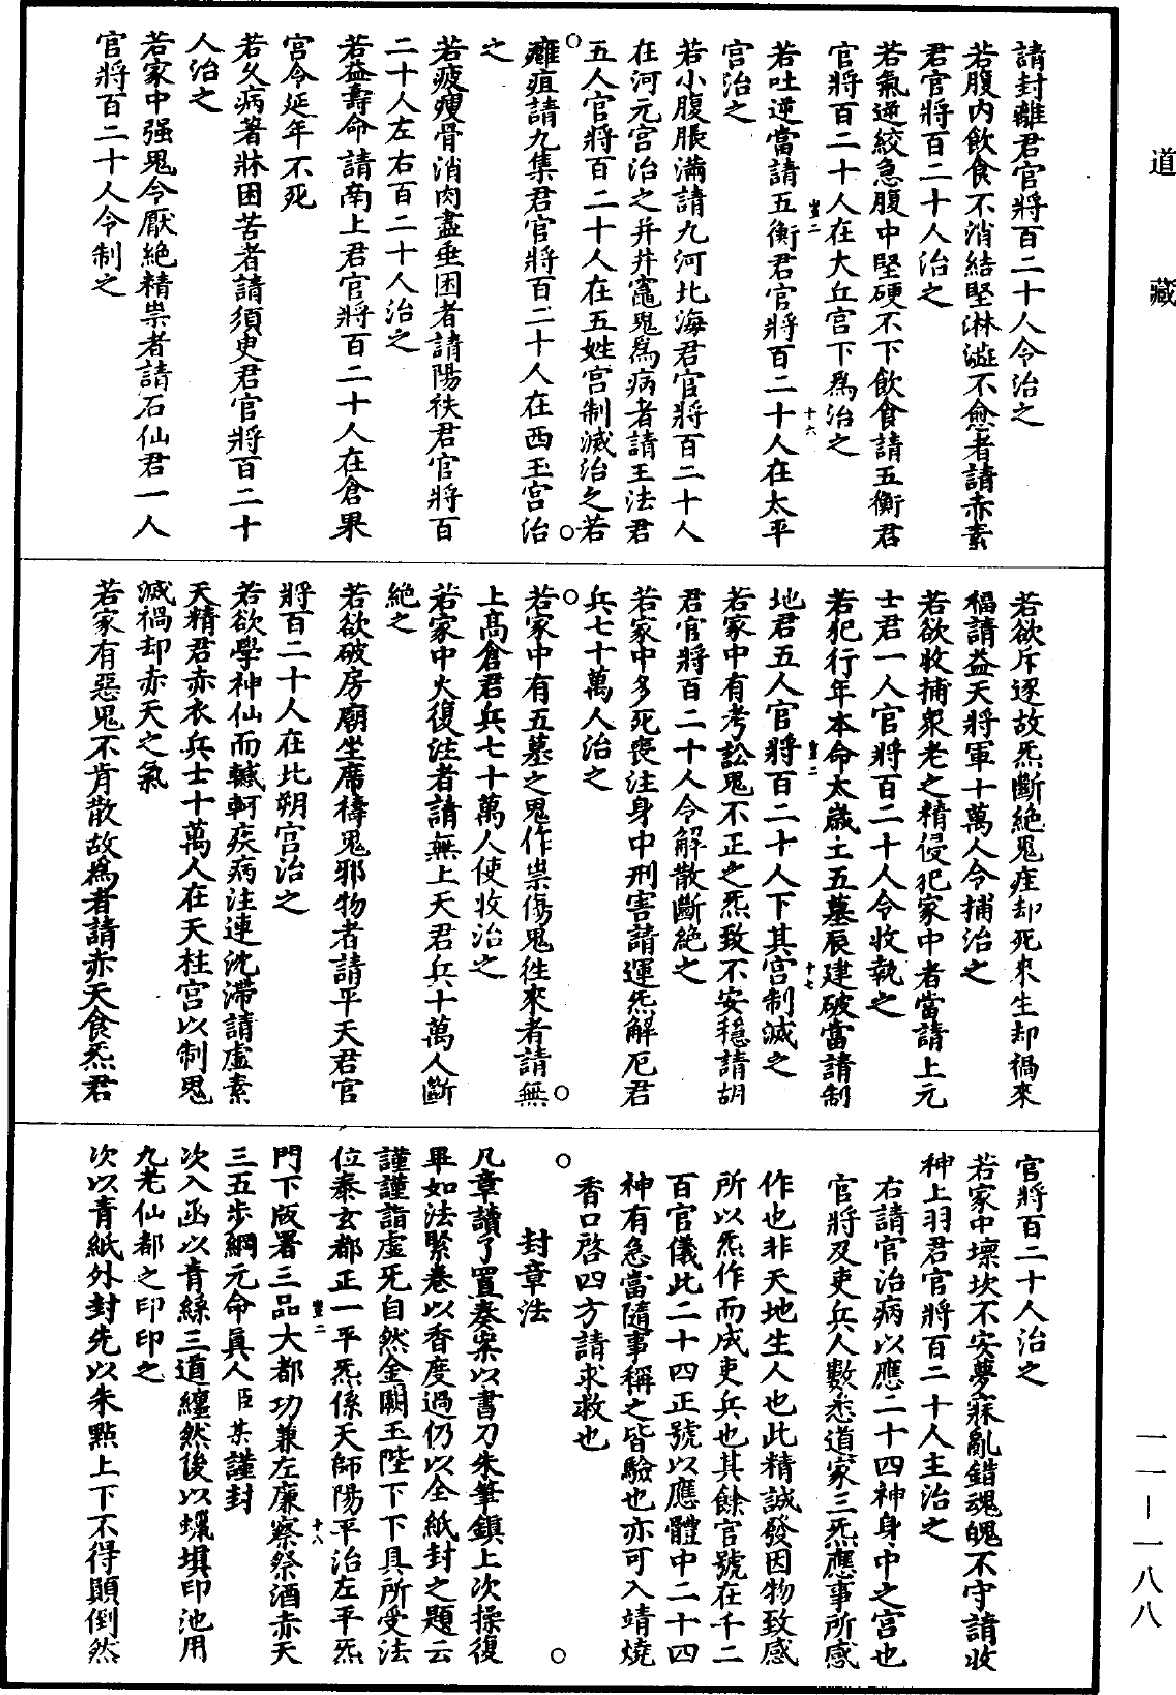 道藏
請封離君官將百二十人令治之
若腹内飲食不消結堅淋澁不愈者請赤素
君官將百二十人治之
若氣逆絞急腹中堅硬不下飲食請五衡君
官將百二十人在大丘官下爲治之
若吐逆當請五衡君官將百二十人在太平
宫治之
若小腹脹滿請九河北海君官將百二十人
在河元宫治之并井竈鬼爲病者請王法君
五人官將百二十人在五姓宫制滅治之若
癰疽請九集君官將百二十人在西玉宫治
之
若疲瘦骨消肉盡垂困者請陽秩君官將百
二十人左右百二十人治之
若益壽命請南上君官將百二十人在倉果
宫令延年不死
若久病著牀困苦者請須臾君官將百二十
人治之
若家中强鬼令厭絶精祟者請石仙君一人
官將百二十人令制之
若欲斥逐故炁斷絶鬼疰却死來生却禍來
福請益天將軍十萬人令捕治之
若欲收捕衆老之精侵犯家中者當請上元
士君一人官將百二十人令收執之
若犯行年本命太歲土五墓辰建破當請制
地君五人官將百二十人下其宫制滅之
若家中有考訟鬼不正之炁致不安穩請胡
君官將百二十人令解散斷絶之
若家中多死喪注身中刑害請運炁解厄君
兵七十萬人治之
若家中有五墓之鬼作祟傷鬼徃來者請無
上髙倉君兵七十萬人使收治之
若家中火復注者請無上天君兵十萬人斷
絶之
若欲破房廟坐席禱鬼邪物者請平天君官
將百二十人在北朔宫治之
若欲學神仙而轗軻疾病注連沈滯請虚素
天精君赤衣兵士十萬人在天柱宫以制鬼
滅禍却赤天之氣
若家有惡鬼不肯散故爲者請赤天食炁君
官將百二十人治之
若家中壞坎不安夢寐亂錯魂魄不守請收
神上羽君官將百二十人主治之
右請官治病以應二十四神身中之宫也
官將及吏兵人數悉道家三炁應事所感
作也非天地生人也此精誠發因物致感
所以炁作而成吏兵也其餘官號在千二
百官儀此二十四正號以應體中二十四
神有急當隨事稱之皆驗也亦可入靖燒
香口啓四方請求救也
封章法
凡章讀了置奏案以書刀朱筆鎮上次操復
畢如法緊卷以香度過仍以全紙封之題云
謹謹詣虚旡自然金闕玉陛下下具所受法
位泰玄都正一平炁係天師陽平治左平炁
門下版署三品大都功兼左廉察祭酒赤天
三五步綱元命眞人臣某謹封
次入函以青絲三道纏然後以蠟填印池用
九老仙都之印印之
次以青紙外封先以朱點上下不得顚倒然
一一—一八八